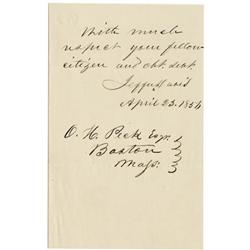 With much
respect your fellow
citizen and obt. servt
Jeffn Davis
April 23. 1856
O. H. Peck Esq.
Boston
Mass.